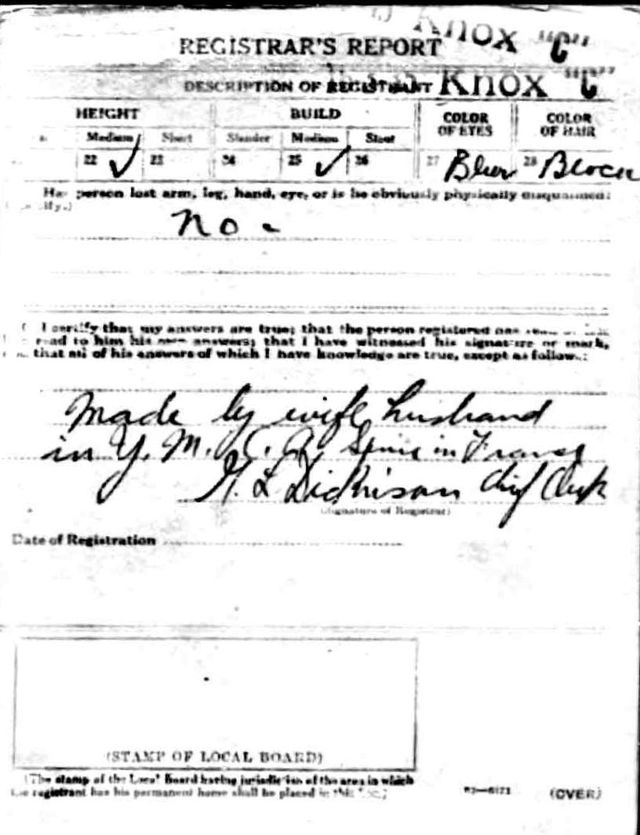 Knox "C"
REGISTRAR'S REPORT
DESCRIPTION OF REGISTRANT Knox "C"
HEIGHT BUILD COLOR OF EYES COLOR OF HAIR
Medium Short Slender Medium Stout
22 ✓ 23 24 25 ✓ 26 27 Blue 28
Has person lost arm, leg, hand, eye, or is he obviously physically disqualified?
No -
I certify that my answers are true; that the person registered has read or
read to him his own answers; that I have witnessed his signature or mark,
that all of his answers of which I have knowledge are true, except as follows:
Made by wife, husband
in Y. M. C. A. in France
Dickison Chief Clerk
(Signature of Registrar)
Date of Registration
(STAMP OF LOCAL BOARD)
(The stamp of the Local Board having jurisdiction of the area in which
the registrant has his permanent home shall be placed in this box.)
(OVER)